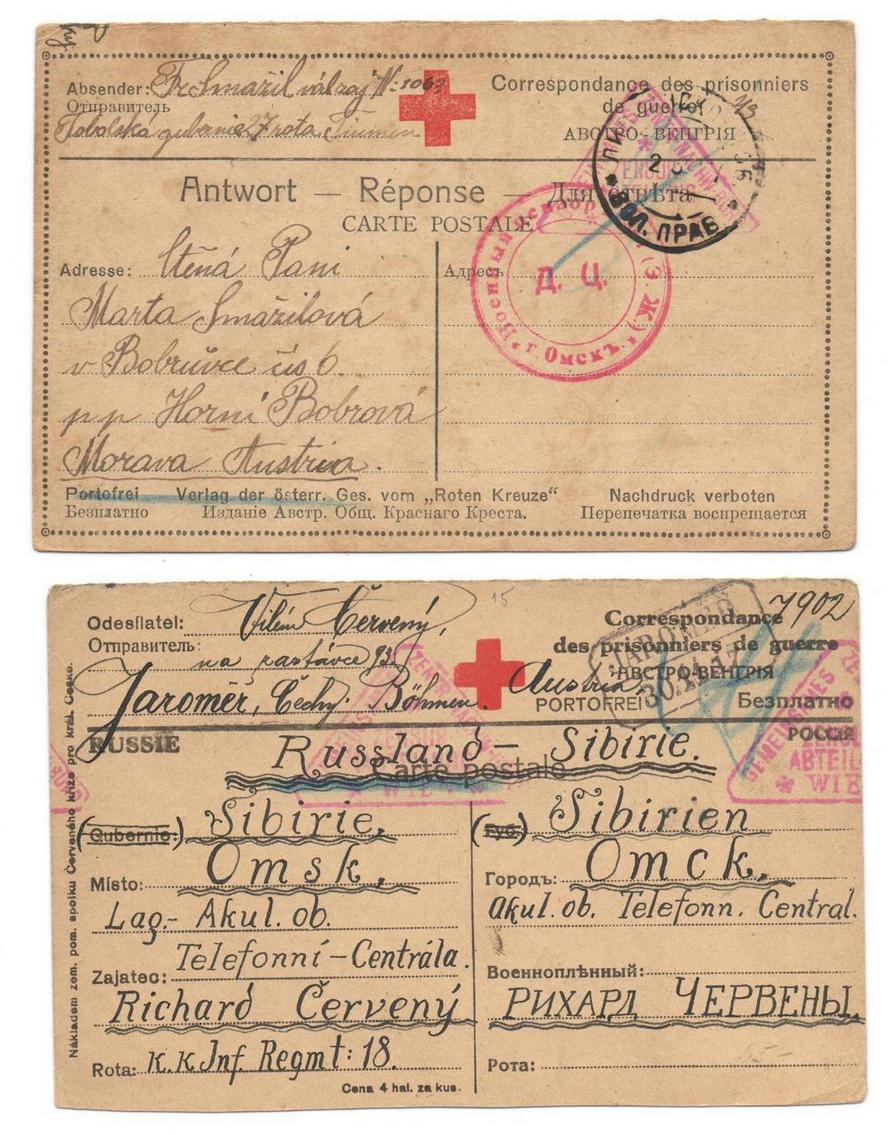 Absender: Fr Smažil vál. zaj N: 1063
Отправитель
Tobolská gubernie 27 rota Tiumen
Correspondance des prisonniers
de guerre
АВСТРО-ВЕНГРІЯ
Antwort — Réponse — Для отвѣта
CARTE POSTALE
ВОЛ. ПРАВ.
Военный цензоръ
Д. Ц.
г. Омскъ.
Adresse: Ctěná Paní
Адресъ
Marta Smažilová
v Bobrůvce čís 6
p p Horní Bobrová
Morava Austria.
Portofrei Verlag der österr. Ges. vom „Roten Kreuze“ Nachdruck verboten
Безплатно Изданіе Австр. Общ. Краснаго Креста. Перепечатка воспрещается
Odesílatel: Vilém Červený,
Отправитель:
na zastávce 93.
Jaroměř, Čechy. Böhmen. Austria
15
7902
Correspondance
des prisonniers de guerre
АВСТРО-ВЕНГРІЯ
PORTOFREI Безплатно
JAROMĚŘ
RUSSIE
РОССІЯ
Russland – Sibirie.
Carte postale
GEMEINSAMES ZENTRALNACHWEISE
ZENSUR
ABTEIL
WIEN
(Gubernie:) Sibirie,
(Губ.) Sibirien
Místo: Omsk,
Городъ: Омск,
Lag.- Akul. ob.
Akul. ob. Telefonn. Central.
Telefonní – Centrála.
Zajatec:
Военноплѣнный:
Richard Červený
РИХАРД ЧЕРВЕНЫ
Rota: K. K. Inf. Regmt: 18.
Рота:
Cena 4 hal. za kus.
Nákladem zem. pom. spolku Červeného kříže pro král. České.